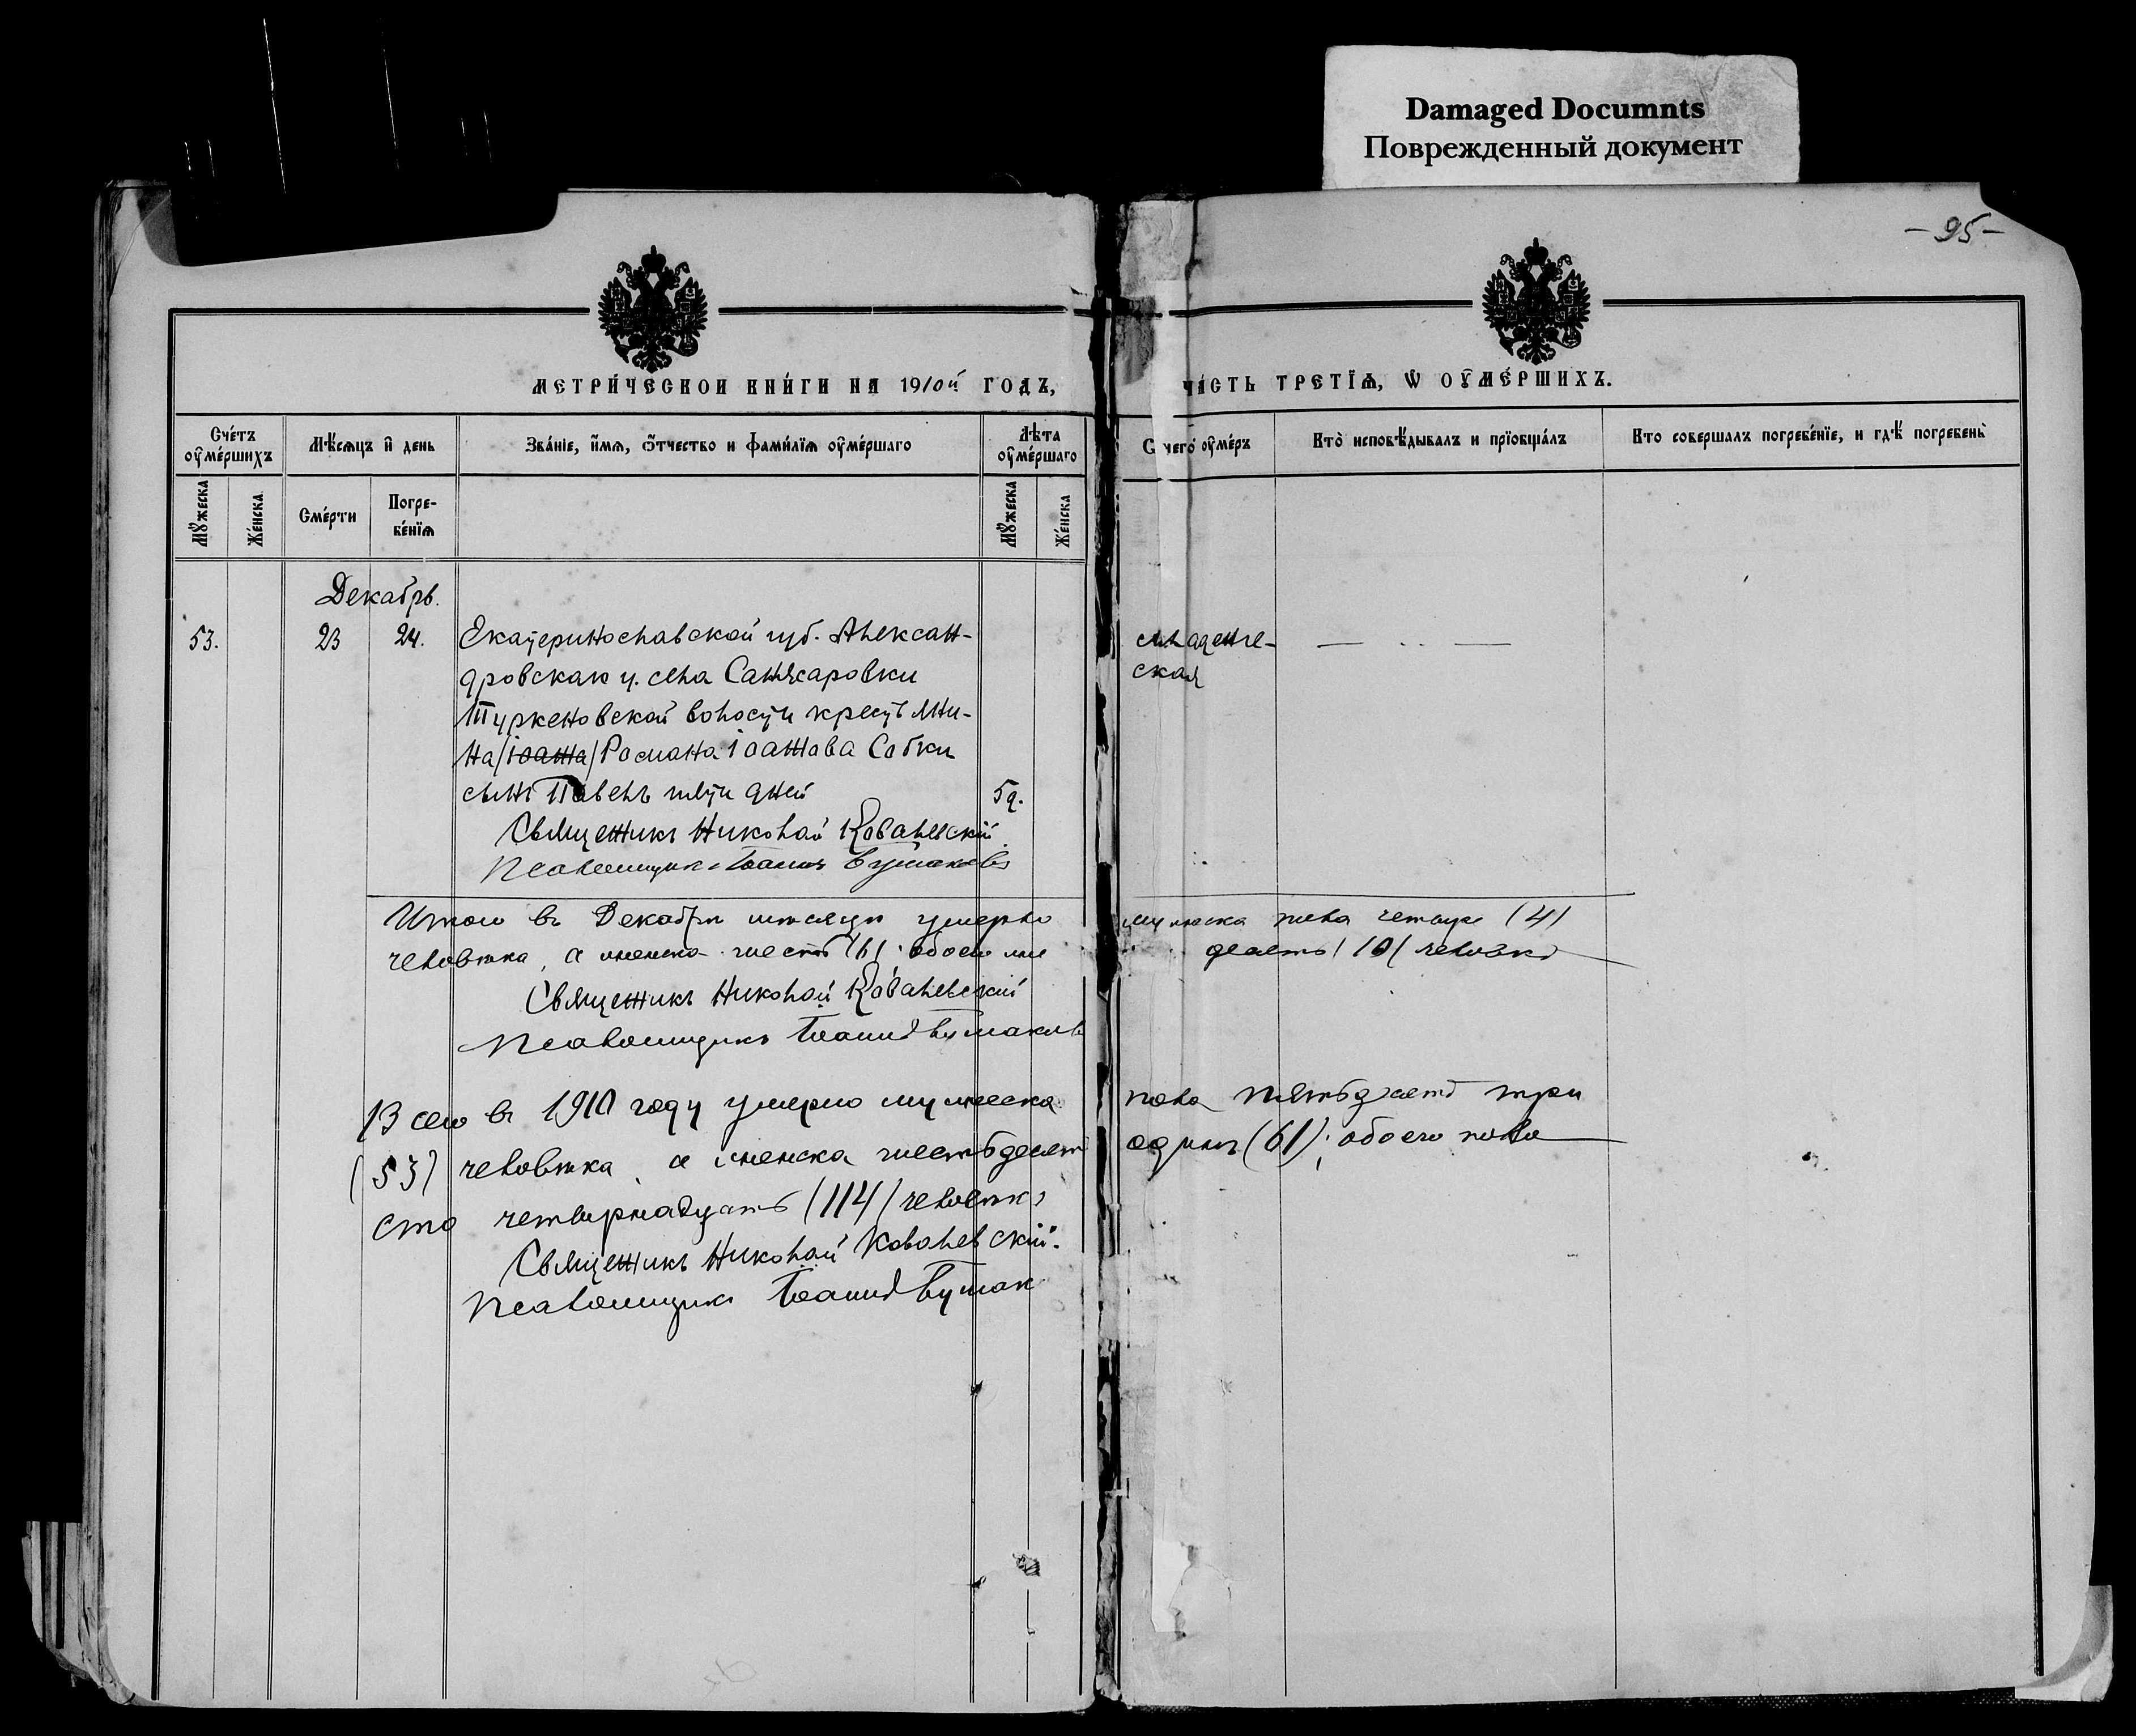 Damaged Documnts
Поврежденный документ
-95-
МЕТРИ́ЧЕСКОИ КНИ́ГИ НА 1910й ГОДЪ,
ЧА́СТЬ ТРЕТІѦ, Ѡ ОУ҆МЕ́РШИХЪ.
Сче́тъ оу҆ме́ршихъ
Мѣ́сѧцъ и҆ день
Зва́нїе, и҆́мѧ, ѻ҆́тчество и фами́лїѧ оу҆ме́ршаго
Лѣ́та оу҆ме́ршаго
С чего́ оу҆ме́ръ
Кто̀ исповѣ́дывалъ и прїобща́лъ
Кто совершалъ погребе́нїе, и гдѣ́ погребены̀
Мꙋ́жеска
Же́нска.
Сме́рти
Погре-
бе́нїѧ
Мꙋ́жеска
Же́нска
Декабрь.
53.
23
24.
Екатеринославской губ. Алексан-
дровскаго у. села Санжаровки
Туркеновской волости крест. Мни-
на/іоанна/Романа Іоаннова Собки
сынъ Павелъ пяти дней
5д.
младенче-
ская
— . . —
Священникъ Николай Ковалевскій
Псаломщикъ Іоаннъ
Итого въ Декабрѣ мѣсяцѣ умерло мужеска пола четыре (4)
человѣка, а женска шесть (6); обоего десять (10) человѣкъ
Священникъ Николай Ковалевскій
Псаломщикъ Іоаннъ
Всего въ 1910 году умерло мужеска пола пятьдесятъ три
(53) человѣка, а женска шестьдесятъ одинъ (61); обоего пола
сто четырнадцать (114) человѣкъ
Священникъ Николай Ковалевскій.
Псаломщикъ Іоаннъ